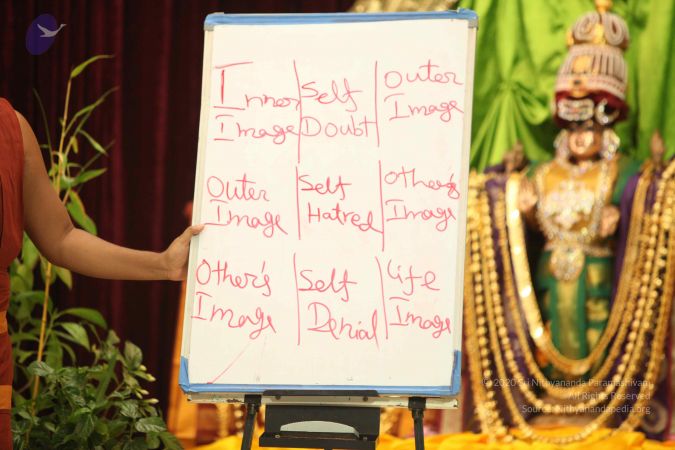 Inner | Self | Outer
Image | Doubt | Image
Outer | Self | Other's
Image | Hatred | Image
Other's | Self | Life
Image | Denial | Image
© 2020 Sri Nithyananda Paramashivam,
All Rights Reserved
Source: Nithyanandapedia.org